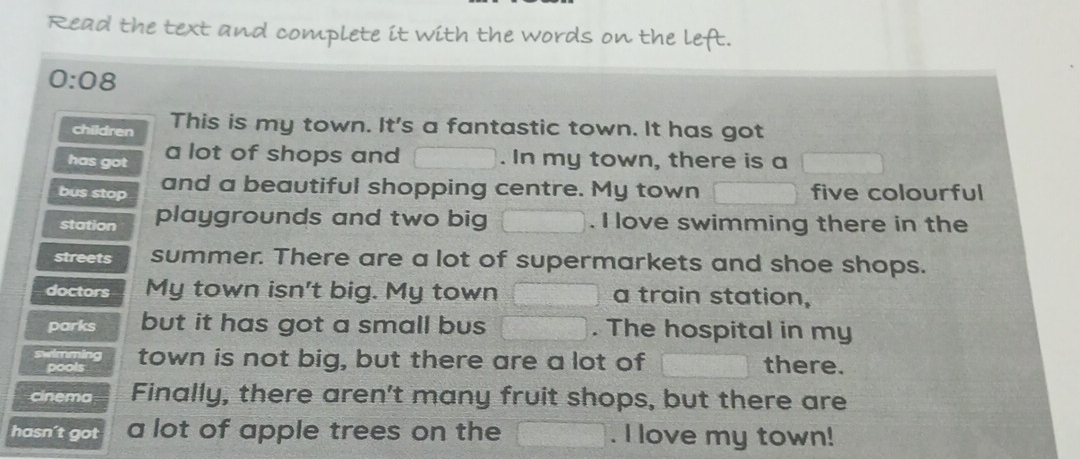 Read the text and complete it with the words on the left.
0:08
children
has got
bus stop
station
streets
doctors
parks
swimming pools
cinema
hasn't got
This is my town. It's a fantastic town. It has got
a lot of shops and . In my town, there is a
and a beautiful shopping centre. My town five colourful
playgrounds and two big . I love swimming there in the
summer. There are a lot of supermarkets and shoe shops.
My town isn't big. My town a train station,
but it has got a small bus . The hospital in my
town is not big, but there are a lot of there.
Finally, there aren't many fruit shops, but there are
a lot of apple trees on the . I love my town!